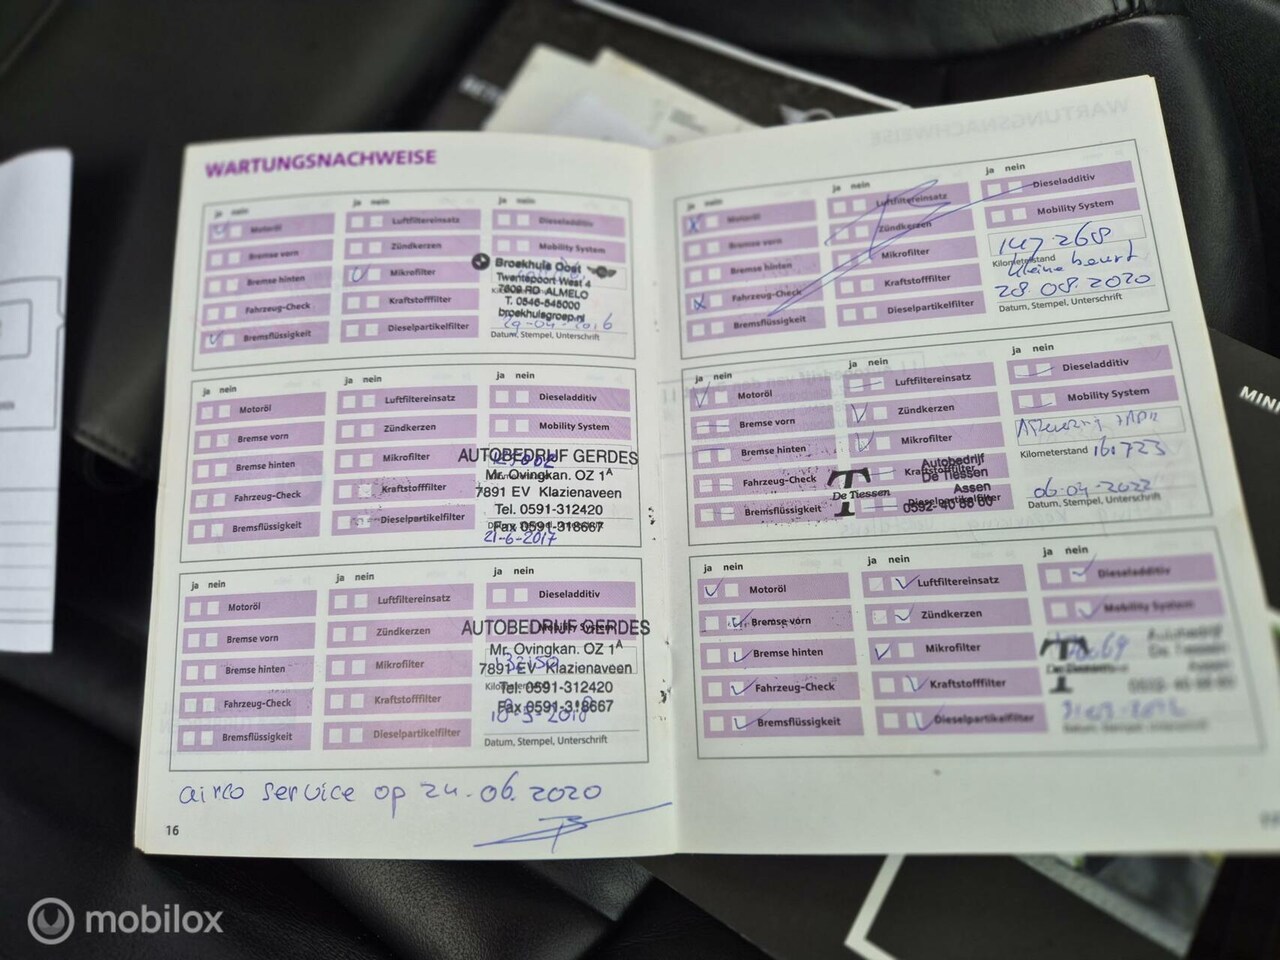 WARTUNGSNACHWEISE
ja nein
Motoröl
Bremse vorn
Bremse hinten
Fahrzeug-Check
Bremsflüssigkeit
ja nein
Luftfiltereinsatz
Zündkerzen
Mikrofilter
Kraftstofffilter
Dieselpartikelfilter
ja nein
Dieseladditiv
Mobility System
Broekhuis Oost
Twentepoort West 4
7609 RD ALMELO
T. 0546-545000
broekhuisgroep.nl
Datum, Stempel, Unterschrift
ja nein
Motoröl
Bremse vorn
Bremse hinten
Fahrzeug-Check
Bremsflüssigkeit
ja nein
Luftfiltereinsatz
Zündkerzen
Mikrofilter
Kraftstofffilter
Dieselpartikelfilter
ja nein
Dieseladditiv
Mobility System
AUTOBEDRIJF GERDES
Mr. Ovingkan. OZ 1A
7891 EV Klazienaveen
Tel. 0591-312420
Fax 0591-318667
21-6-2017
ja nein
Motoröl
Bremse vorn
Bremse hinten
Fahrzeug-Check
Bremsflüssigkeit
ja nein
Luftfiltereinsatz
Zündkerzen
Mikrofilter
Kraftstofffilter
Dieselpartikelfilter
ja nein
Dieseladditiv
AUTOBEDRIJF GERDES
Mr. Ovingkan. OZ 1A
7891 EV Klazienaveen
Tel. 0591-312420
Fax 0591-318667
Datum, Stempel, Unterschrift
airco service op 24.06.2020
16
ja nein
Motoröl
Bremse vorn
Bremse hinten
Fahrzeug-Check
Bremsflüssigkeit
ja nein
Luftfiltereinsatz
Zündkerzen
Mikrofilter
Kraftstofffilter
Dieselpartikelfilter
ja nein
Dieseladditiv
Mobility System
147268
Kilometerstand
kleine beurt
28.08.2020
Datum, Stempel, Unterschrift
ja nein
Motoröl
Bremse vorn
Bremse hinten
Fahrzeug-Check
Bremsflüssigkeit
ja nein
Luftfiltereinsatz
Zündkerzen
Mikrofilter
Kraftstofffilter
Dieselpartikelfilter
ja nein
Dieseladditiv
Mobility System
Kilometerstand 160723
Autobedrijf
De Tiessen
Assen
De Tiessen
06-04-2022
Datum, Stempel, Unterschrift
ja nein
Motoröl
Bremse vorn
Bremse hinten
Fahrzeug-Check
Bremsflüssigkeit
ja nein
Luftfiltereinsatz
Zündkerzen
Mikrofilter
Kraftstofffilter
Dieselpartikelfilter
ja nein
Dieseladditiv
Mobility System
MINI
mobilox